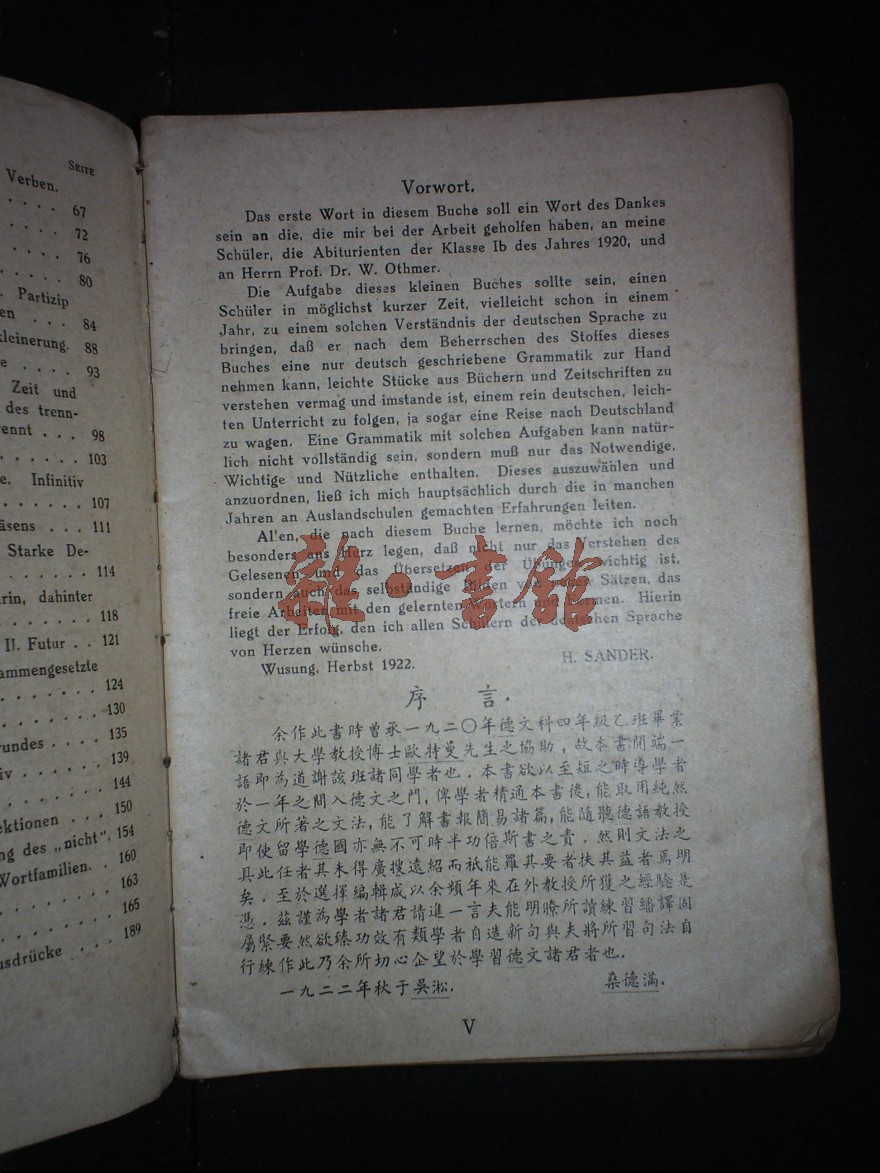 SEITE
Verben.
. . . . 67
. . . . 72
. . . . 76
. . . . . 80
. Partizip
en . . . 84
kleinerung. 88
e . . . . 93
Zeit und
des trenn-
ennt . . . 98
. . . . . . 103
e. Infinitiv
. . . . . . 107
äsens . . . 111
Starke De-
. . . . . . 114
rin, dahinter
. . . . . . . 118
II. Futur . . 121
ammengesetzte
. . . . . . . 124
. . . . . . . 130
rundes . . . . 135
iv . . . . . . 139
. . . . . . . 144
ektionen . . . 150
ng des „nicht“. 154
Wortfamilien. . 160
. . . . . . . 163
. . . . . . . 165
usdrücke . . . 189
Vorwort.
Das erste Wort in diesem Buche soll ein Wort des Dankes
sein an die, die mir bei der Arbeit geholfen haben, an meine
Schüler, die Abiturienten der Klasse Ib des Jahres 1920, und
an Herrn Prof. Dr. W. Othmer.
Die Aufgabe dieses kleinen Buches sollte sein, einen
Schüler in möglichst kurzer Zeit, vielleicht schon in einem
Jahr, zu einem solchen Verständnis der deutschen Sprache zu
bringen, daß er nach dem Beherrschen des Stoffes dieses
Buches eine nur deutsch geschriebene Grammatik zur Hand
nehmen kann, leichte Stücke aus Büchern und Zeitschriften zu
verstehen vermag und imstande ist, einem rein deutschen, leich-
ten Unterricht zu folgen, ja sogar eine Reise nach Deutschland
zu wagen. Eine Grammatik mit solchen Aufgaben kann natür-
lich nicht vollständig sein, sondern muß nur das Notwendige,
Wichtige und Nützliche enthalten. Dieses auszuwählen und
anzuordnen, ließ ich mich hauptsächlich durch die in manchen
Jahren an Auslandschulen gemachten Erfahrungen leiten.
Allen, die nach diesem Buche lernen, möchte ich noch
besonders ans Herz legen, daß nicht nur das Verstehen des
Gelesenen und das Übersetzen der Übungen wichtig ist,
sondern auch das selbständige Bilden von neuen Sätzen, das
freie Arbeiten mit den gelernten Wörtern und Formen. Hierin
liegt der Erfolg, den ich allen Schülern der deutschen Sprache
von Herzen wünsche.
Wusung, Herbst 1922. H. SANDER.
雜·書館
序 言.
余作此書時曾承一九二〇年德文科四年級乙班畢業
諸君與大學教授博士歐特曼先生之協助,故本書開端一
語即為道謝該班諸同學者也.本書欲以至短之時導學者
於一年之間入德文之門,俾學者精通本書後,能取用純然
德文所著之文法,能了解書報簡易諸篇,能隨聽德語教授
即使留學德國亦無不可時半功倍斯書之責.然則文法之
具此任者其未得廣搜遠紹而祇能羅其要者扶其益者焉明
矣.至於選擇編輯咸以余頻年來在外教授所獲之經驗是
憑.茲謹為學者諸君請進一言夫能明瞭所讀練習繙譯固
屬緊要然欲臻功效有類學者自造新句與夫將所習句法自
行練作此乃余所切心企望於學習德文諸君者也.
一九二二年秋于吳淞. 桑德滿.
V